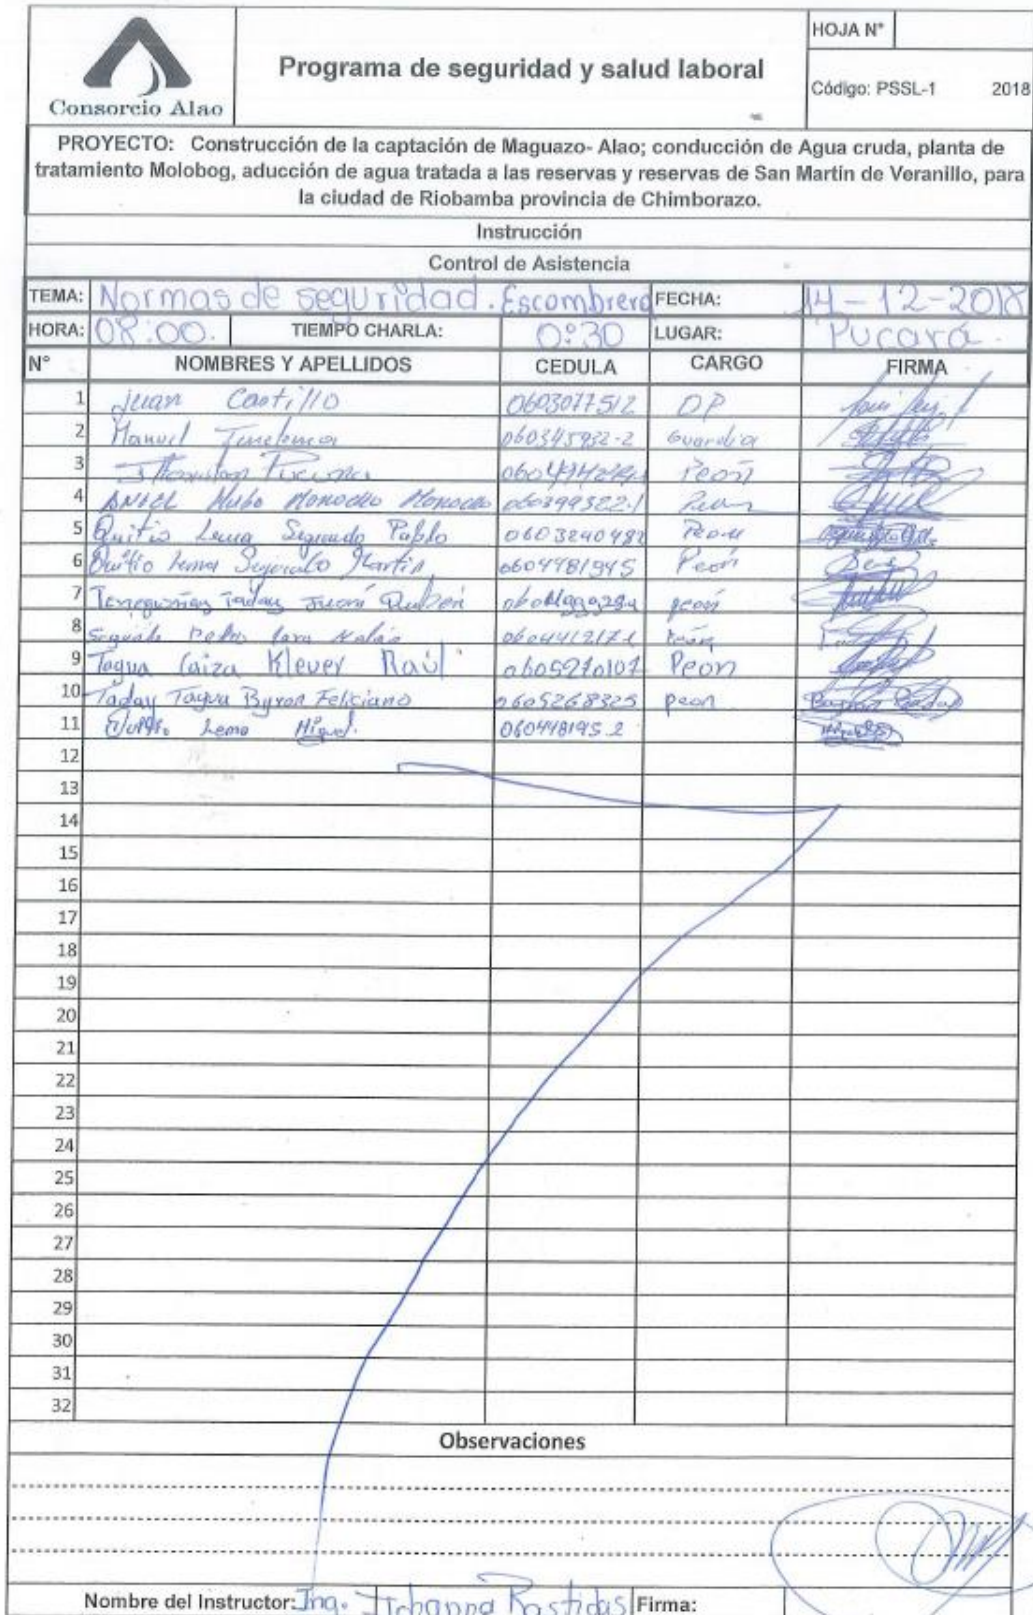 HOJA N°
Consorcio Alao
Programa de seguridad y salud laboral
Código: PSSL-1 2018
PROYECTO: Construcción de la captación de Maguazo- Alao; conducción de Agua cruda, planta de
tratamiento Molobog, aducción de agua tratada a las reservas y reservas de San Martín de Veranillo, para
la ciudad de Riobamba provincia de Chimborazo.
Instrucción
Control de Asistencia
TEMA: Normas de seguridad. Escombrera FECHA: 14-12-2018
HORA: 08:00. TIEMPO CHARLA: 0:30 LUGAR: Pucará.
N° NOMBRES Y APELLIDOS CEDULA CARGO FIRMA
1 Juan Castillo 0603077512 OP
2 Manuel 060345932-2 Guardia
3 Peón
4 Hugo 060399322-1
5 Quitio Lema Segundo Pablo 0603240482 Peon
6 Quitio Lema Segundo Martin 0604481945 Peón
7 Taday Juan Ruben peon
8 Segundo Pedro
9 Tagua Caiza Klever Raúl 0605270107 Peon
10 Taday Tagua Byron Feliciano 0605268325 peon
11 Quitio Lema Miguel. 060448195-2
12
13
14
15
16
17
18
19
20
21
22
23
24
25
26
27
28
29
30
31
32
Observaciones
Nombre del Instructor: Ing. Johanna Bastidas Firma: